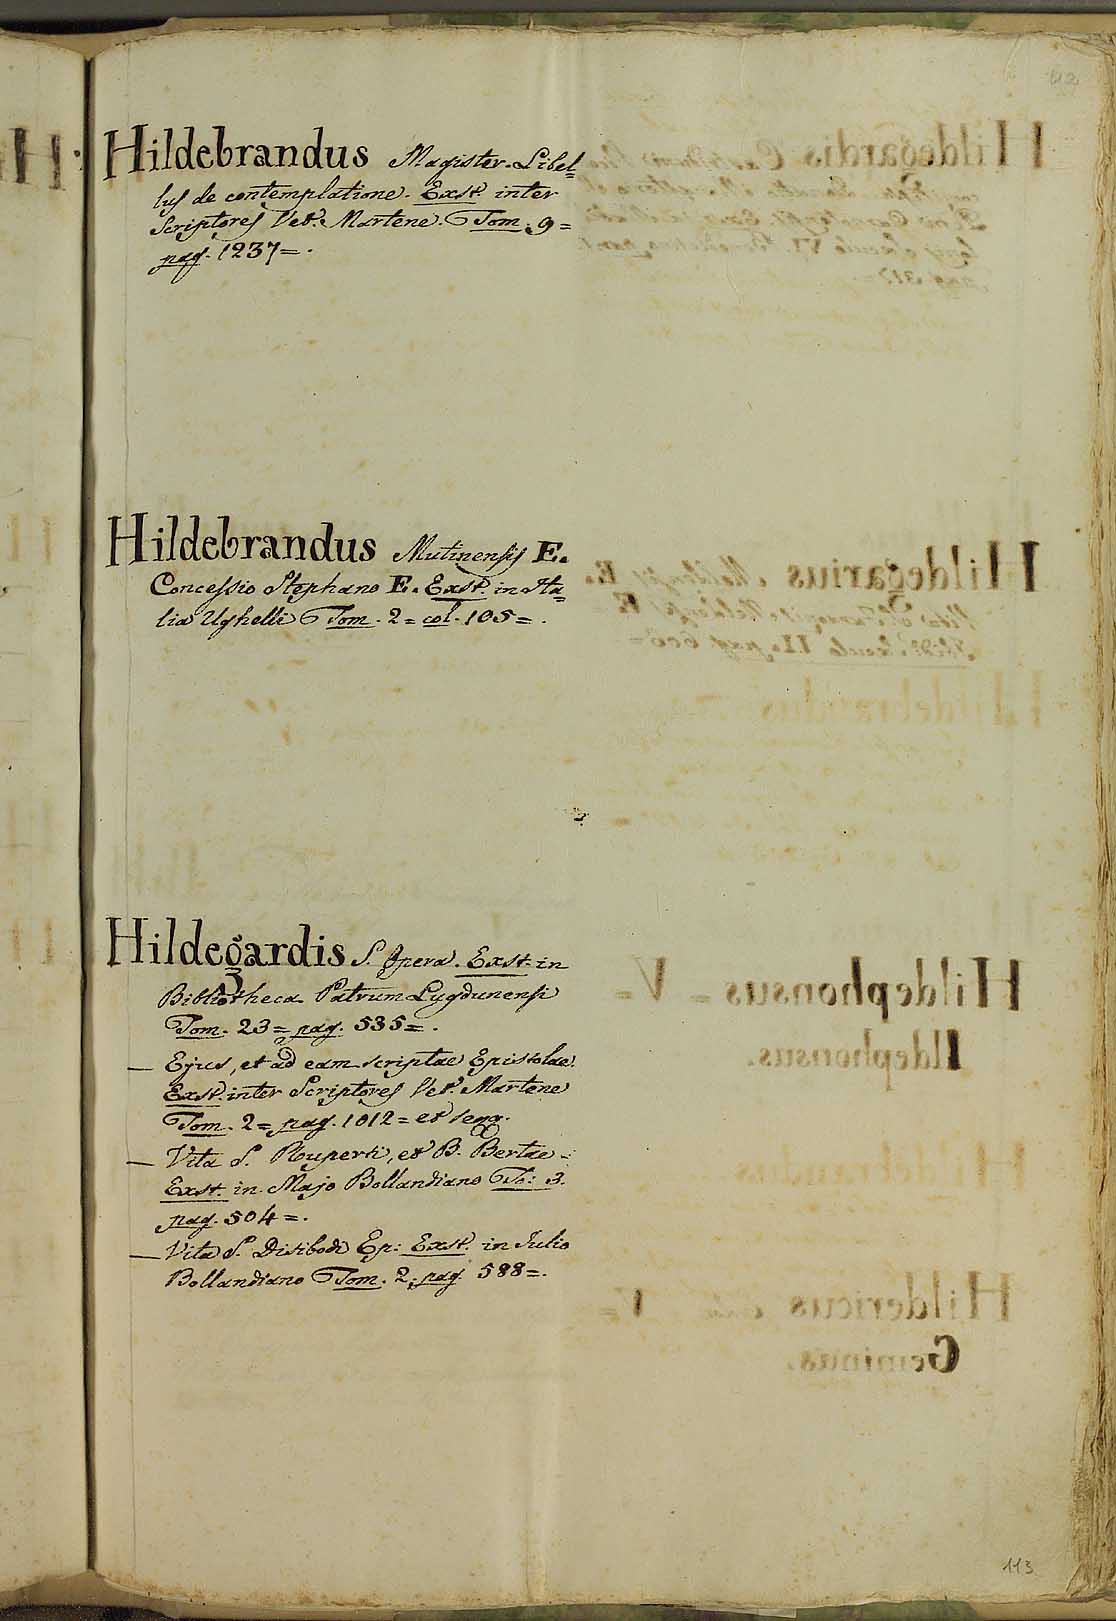 112
Hildebrandus Magister. Libel=
lus de contemplatione. Exst. inter
Scriptores Vet. Martene. Tom. 9=
pag. 1237=.
Hildebrandus Mutinensis E.
Concessio Stephano E. Exst. in Ita=
lia Ughelli Tom. 2= col. 105=.
Hildegardis S. Opera. Exst. in
Bibliotheca Patrum Lugdunensi
Tom. 23= pag. 535=.
— Ejus, et ad eam scriptae Epistolae.
Exst. inter Scriptores Vet. Martene
Tom. 2= pag. 1012= et seqq.
— Vita S. Ruperti, et B. Bertae.
Exst. in Majo Bollandiano To: 3.
pag. 504=.
— Vita S. Disibodi Ep: Exst. in Julio
Bollandiano Tom. 2. pag. 588=.
113